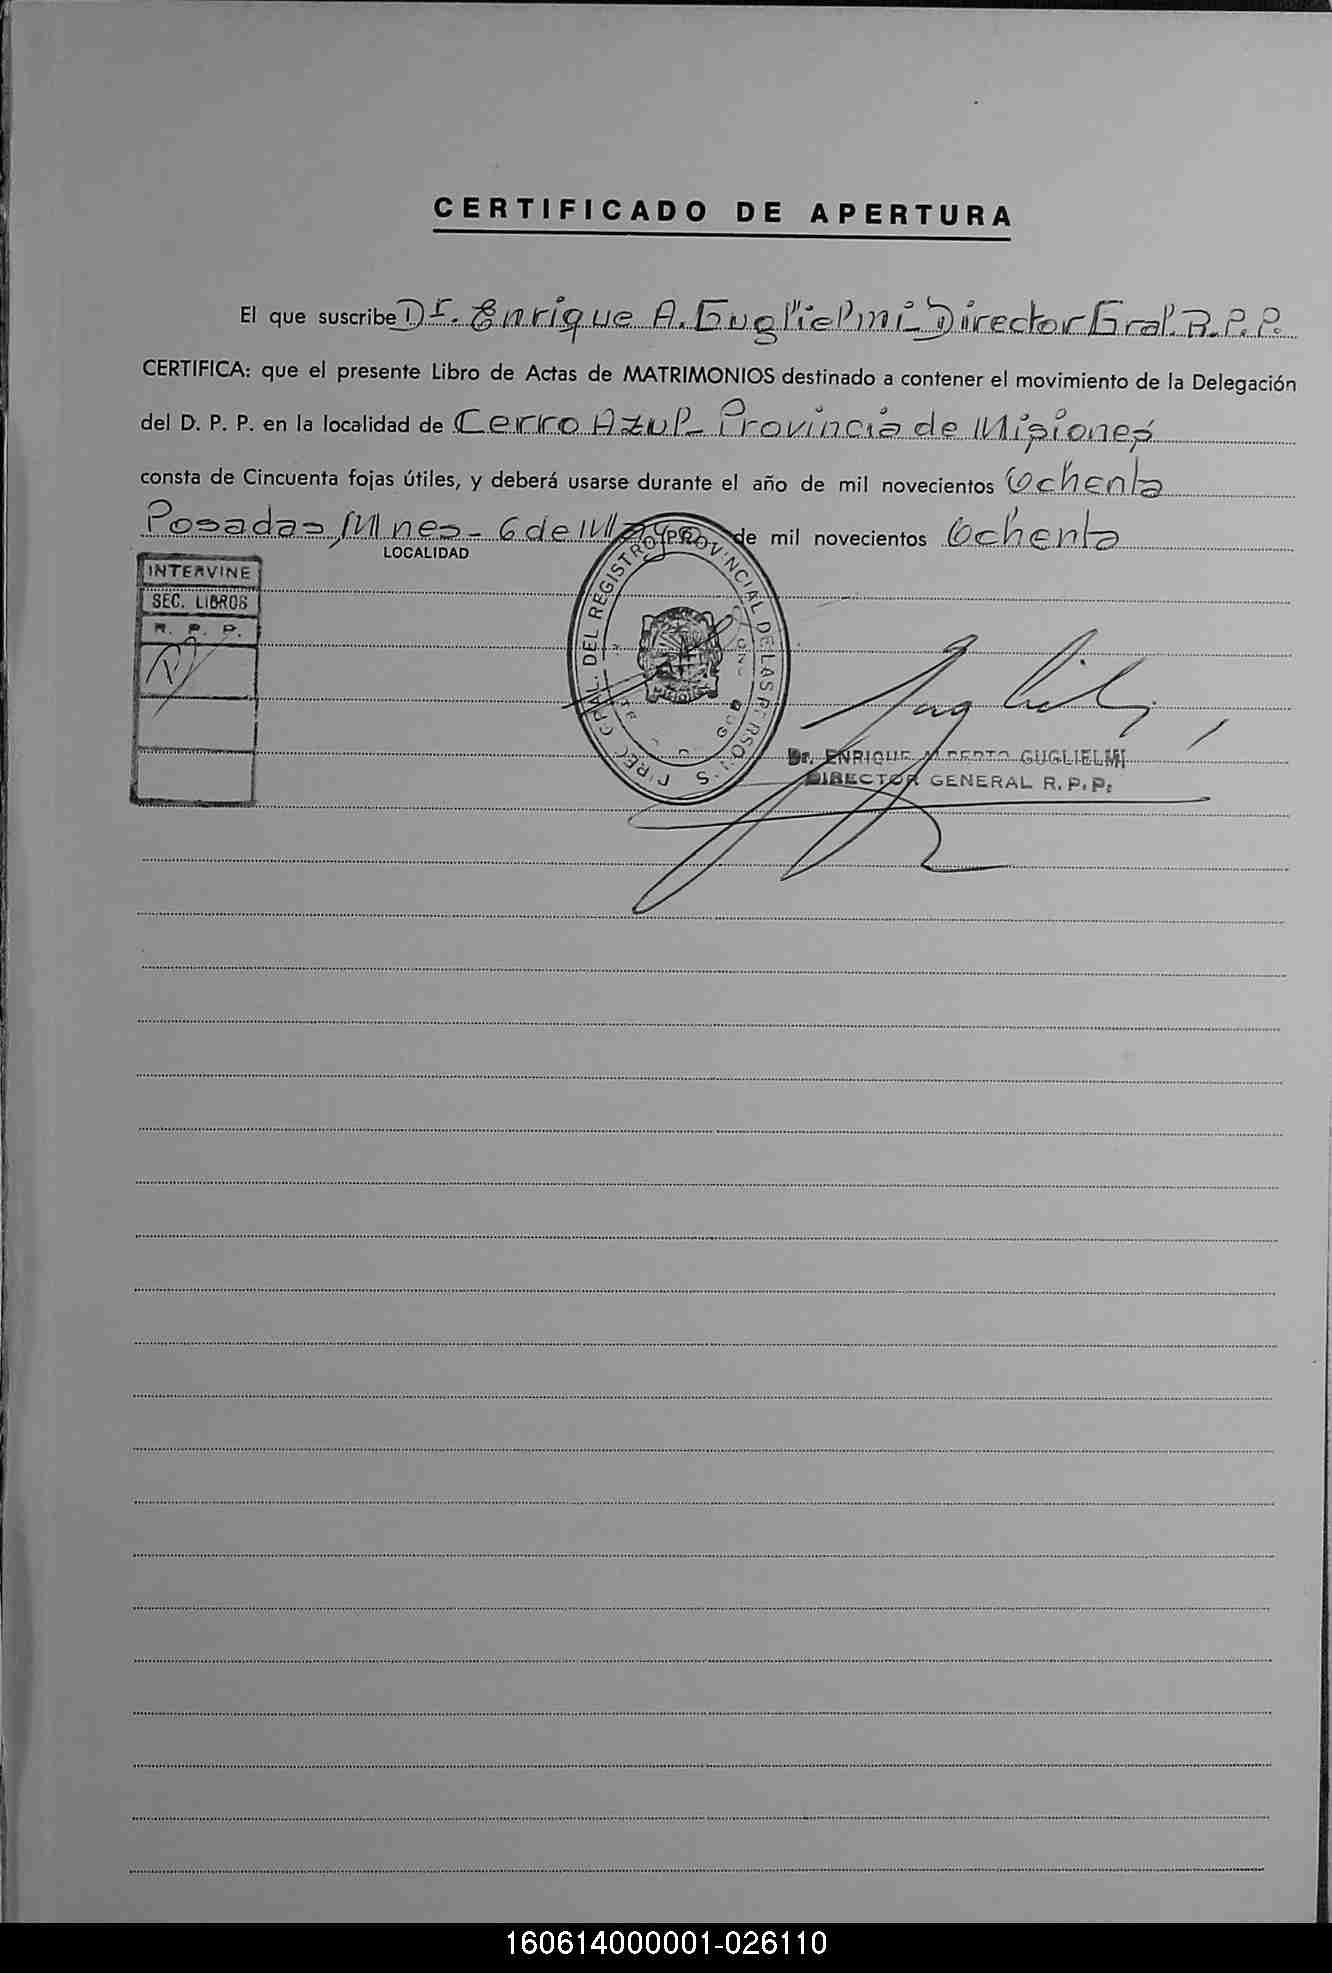 CERTIFICADO DE APERTURA
El que suscribe Dr. Enrique A. Guglielmi - Director Gral. R.P.P.
CERTIFICA: que el presente Libro de Actas de MATRIMONIOS destinado a contener el movimiento de la Delegación
del D. P. P. en la localidad de Cerro Azul - Provincia de Misiones
consta de Cincuenta fojas útiles, y deberá usarse durante el año de mil novecientos Ochenta
Posadas, Mnes - 6 de Mayo de mil novecientos Ochenta
LOCALIDAD
INTERVINE
SEC. LIBROS
R. P. P.
DIREC. GRAL. DEL REGISTRO PROVINCIAL DE LAS PERSONAS
Dr. ENRIQUE ALBERTO GUGLIELMI
DIRECTOR GENERAL R. P. P.
160614000001-026110